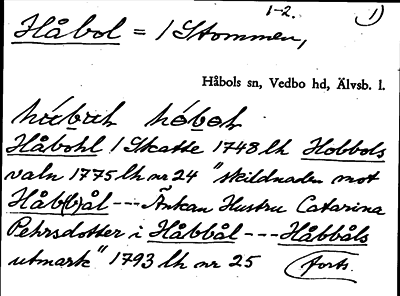 1-2. 1)
Håbol = / Stommen,
Håbols sn, Vedbo hd, Älvsb. l.
Håbohl / Skatte 1748 lh Hobbols
valn 1775 lh nr 24 "skildnaden mot
Håb(b)ål --- Änkan Hustru Catarina
Pehrsdotter i Håbbål --- Håbbåls
utmark" 1793 lh nr 25 forts.